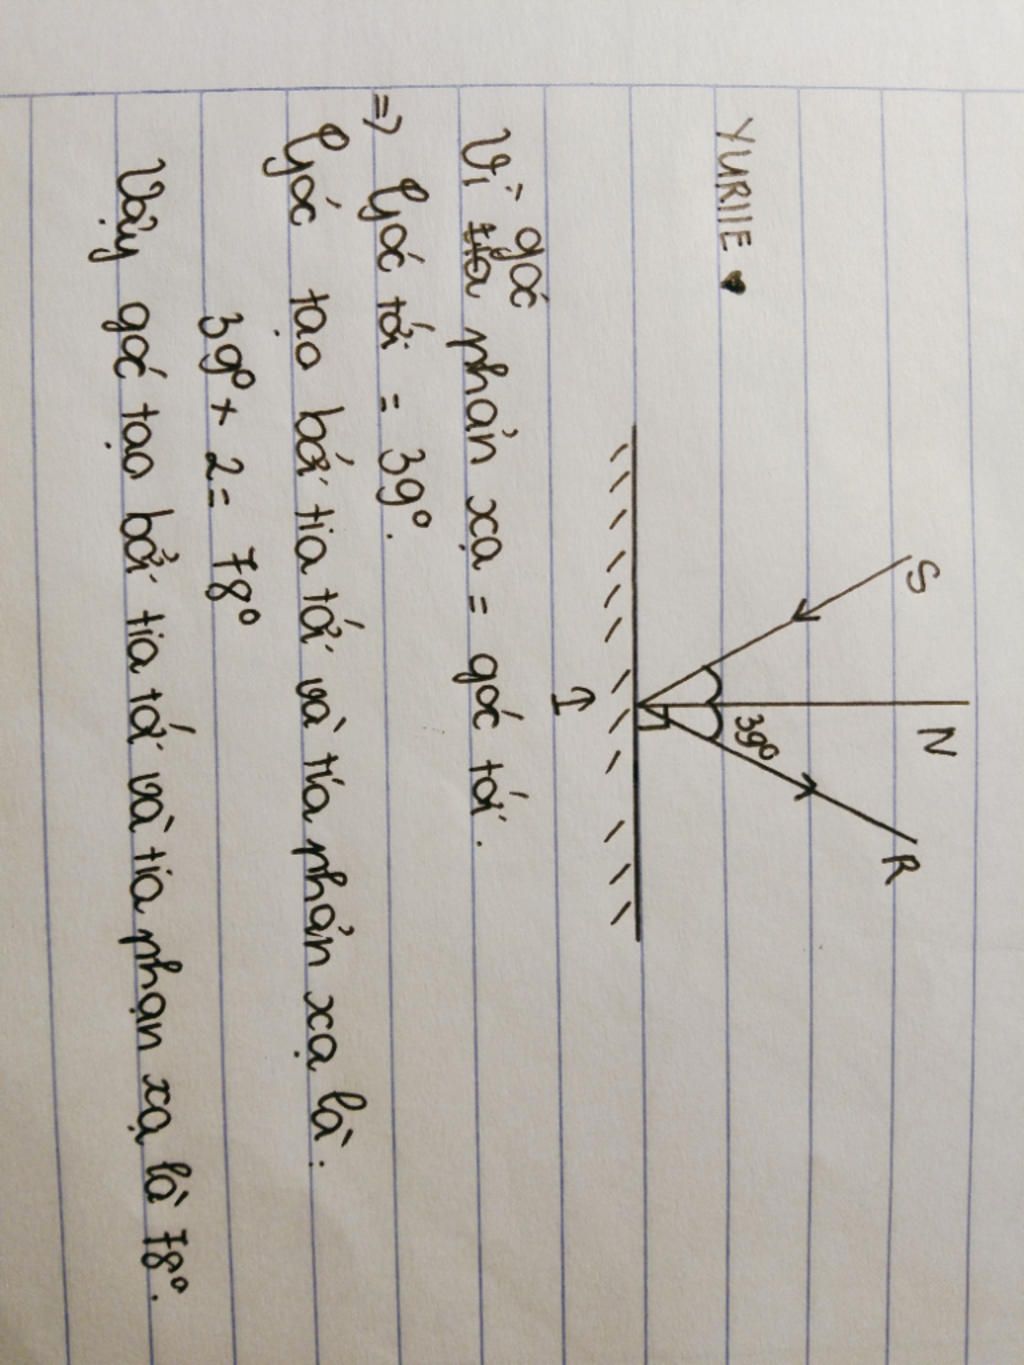 YURIIE ♥
S
N
R
39°
I
góc
Vì tia phản xạ = góc tới.
=> Góc tới = 39°.
Góc tạo bởi tia tới và tia phản xạ là:
39° × 2 = 78°
Vậy góc tạo bởi tia tới và tia phản xạ là 78°.